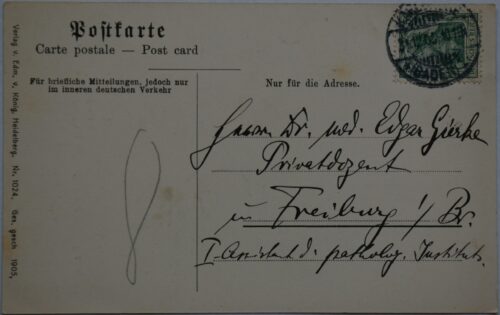 Postkarte
Carte postale — Post card
Für briefliche Mitteilungen, jedoch nur
im inneren deutschen Verkehr
Nur für die Adresse.
Herrn Dr. med. Edgar Gierke
Privatdozent
in Freiburg i/Br.
I. Assistent d. patholog. Instituts.
Verlag v. Edm. v. König, Heidelberg. No. 1024. Ges. gesch. 1905.
(BADEN)